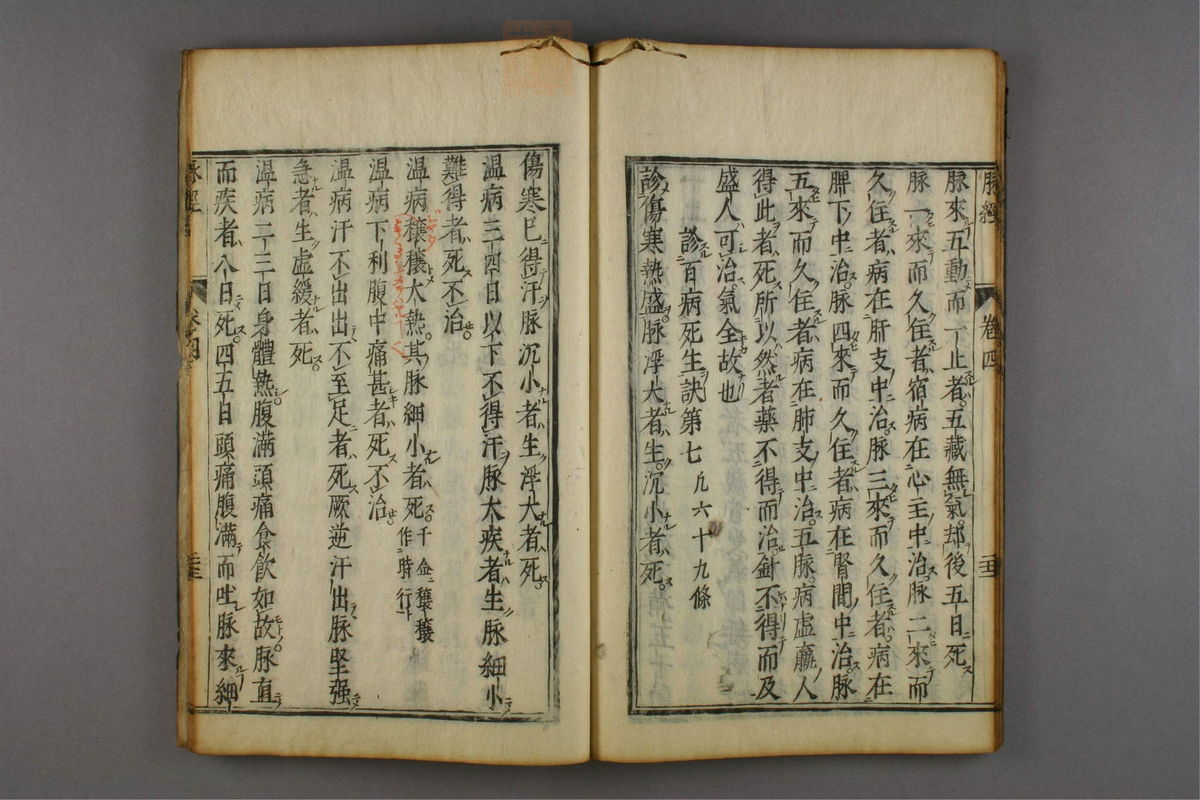 脉經 卷四 二十二
脉來五動而一止者五藏無氣却後五日死
脉一來而久住者宿病在心主中治脉二來而
久住者病在肝支中治脉三來而久住者病在
脾下中治脉四來而久住者病在腎間中治脉
五來而久住者病在肺支中治五脉病虛羸人
得此者死所以然者藥不得而治針不得而及
盛人可治氣全故也
診百病死生訣第七 凡六十九條
診傷寒熱盛脉浮大者生沉小者死
傷寒已得汗脉沉小者生浮大者死
温病三四日以下不得汗脉大疾者生脉細小
難得者死不治
温病穰穰大熱其脉細小者死 千金穰穰作時行
温病下利腹中痛甚者死不治
温病汗不出出不至足者死厥逆汗出脉堅强
急者生虛緩者死
温病二三日身體熱腹滿頭痛食飲如故脉直
而疾者八日死四五日頭痛腹滿而吐脉來細
脉經 卷四